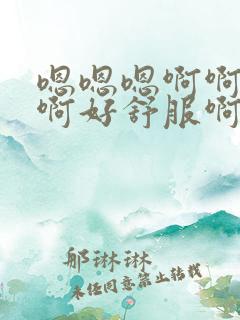 嗯嗯嗯啊啊
啊好舒服啊
邮琳琳
未经同意禁止转载